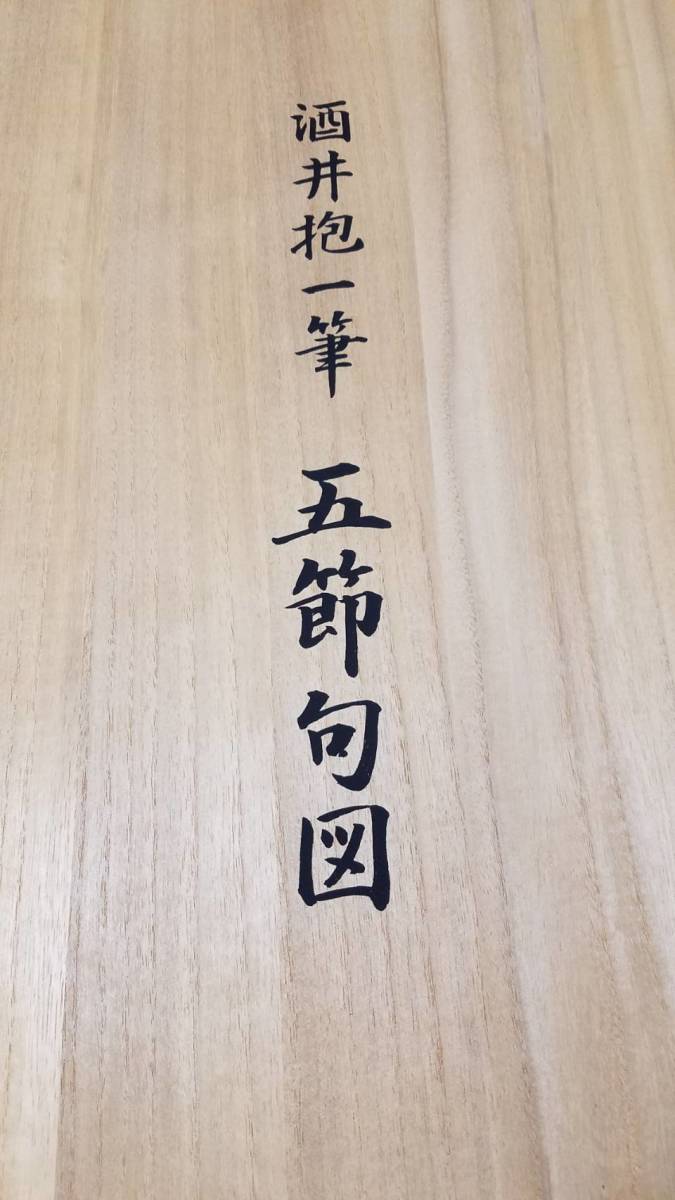 酒井抱一筆 五節句図